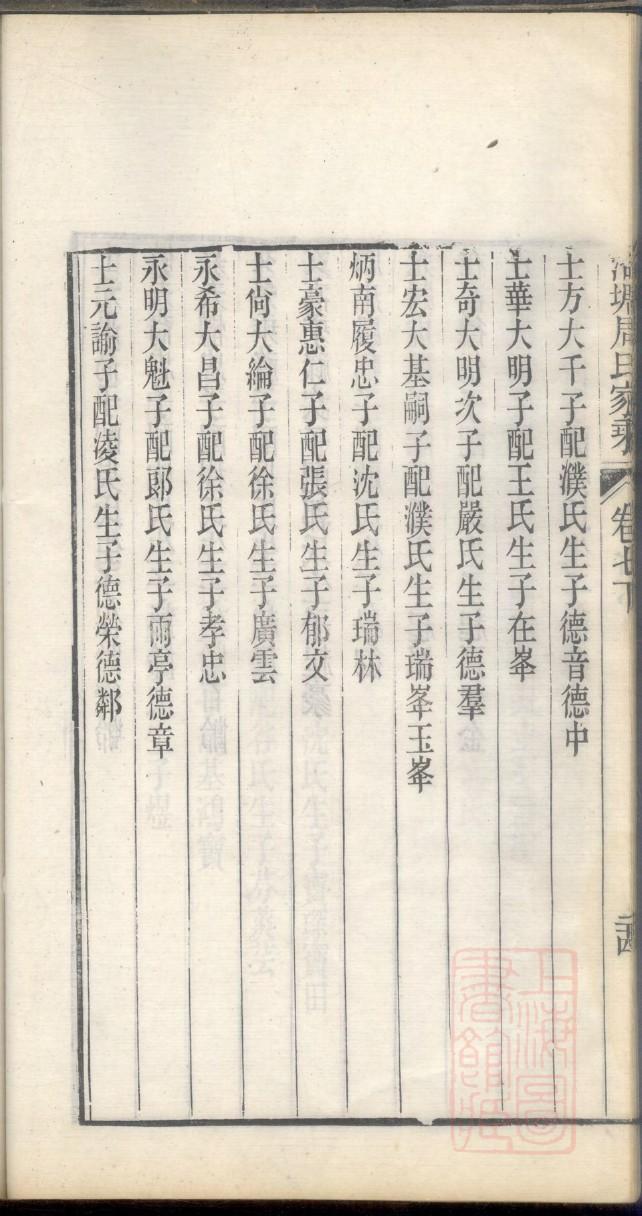 塘周氏家乘 卷七下
士方大千子配濮氏生子德音德中
士華大明子配王氏生子在峯
士奇大明次子配嚴氏生子德羣
士宏大基嗣子配濮氏生子瑞峯玉峯
炳南履忠子配沈氏生子瑞林
士豪惠仁子配張氏生子郁文
士尙大綸子配徐氏生子廣雲
永希大昌子配徐氏生子孝忠
永明大魁子配郎氏生子雨亭德章
士元諭子配凌氏生子德榮德鄰
上海圖書館藏